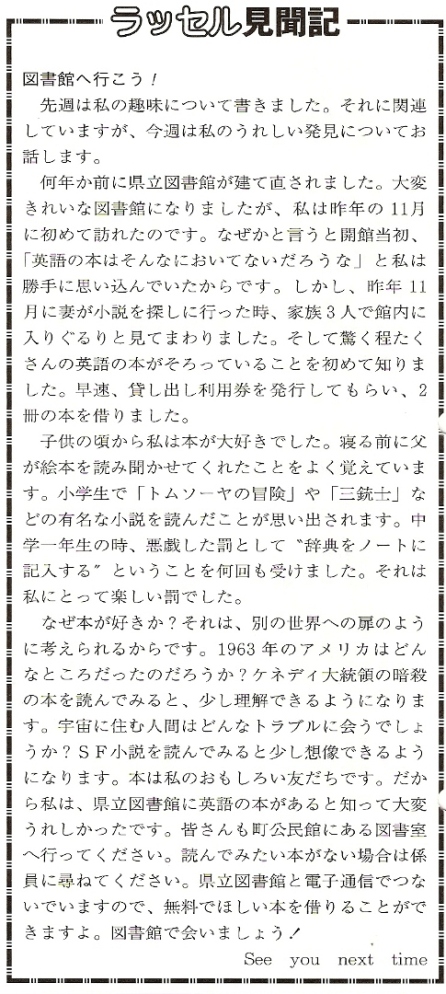 ラッセル見聞記
図書館へ行こう！
先週は私の趣味について書きました。それに関連
していますが、今週は私のうれしい発見についてお
話します。
何年か前に県立図書館が建て直されました。大変
きれいな図書館になりましたが、私は昨年の11月
に初めて訪れたのです。なぜかと言うと開館当初、
「英語の本はそんなにおいてないだろうな」と私は
勝手に思い込んでいたからです。しかし、昨年11
月に妻が小説を探しに行った時、家族3人で館内に
入りぐるりと見てまわりました。そして驚く程たく
さんの英語の本がそろっていることを初めて知りま
した。早速、貸し出し利用券を発行してもらい、2
冊の本を借りました。
子供の頃から私は本が大好きでした。寝る前に父
が絵本を読み聞かせてくれたことをよく覚えていま
す。小学生で「トムソーヤの冒険」や「三銃士」な
どの有名な小説を読んだことが思い出されます。中
学一年生の時、悪戯した罰として〝辞典をノートに
記入する〞ということを何回も受けました。それは
私にとって楽しい罰でした。
なぜ本が好きか？それは、別の世界への扉のよう
に考えられるからです。1963年のアメリカはどん
なところだったのだろうか？ケネディ大統領の暗殺
の本を読んでみると、少し理解できるようになりま
す。宇宙に住む人間はどんなトラブルに会うでしょ
うか？ＳＦ小説を読んでみると少し想像できるよう
になります。本は私のおもしろい友だちです。だか
ら私は、県立図書館に英語の本があると知って大変
うれしかったです。皆さんも町公民館にある図書室
へ行ってください。読んでみたい本がない場合は係
員に尋ねてください。県立図書館と電子通信でつな
いでいますので、無料でほしい本を借りることがで
きますよ。図書館で会いましょう！
See you next time